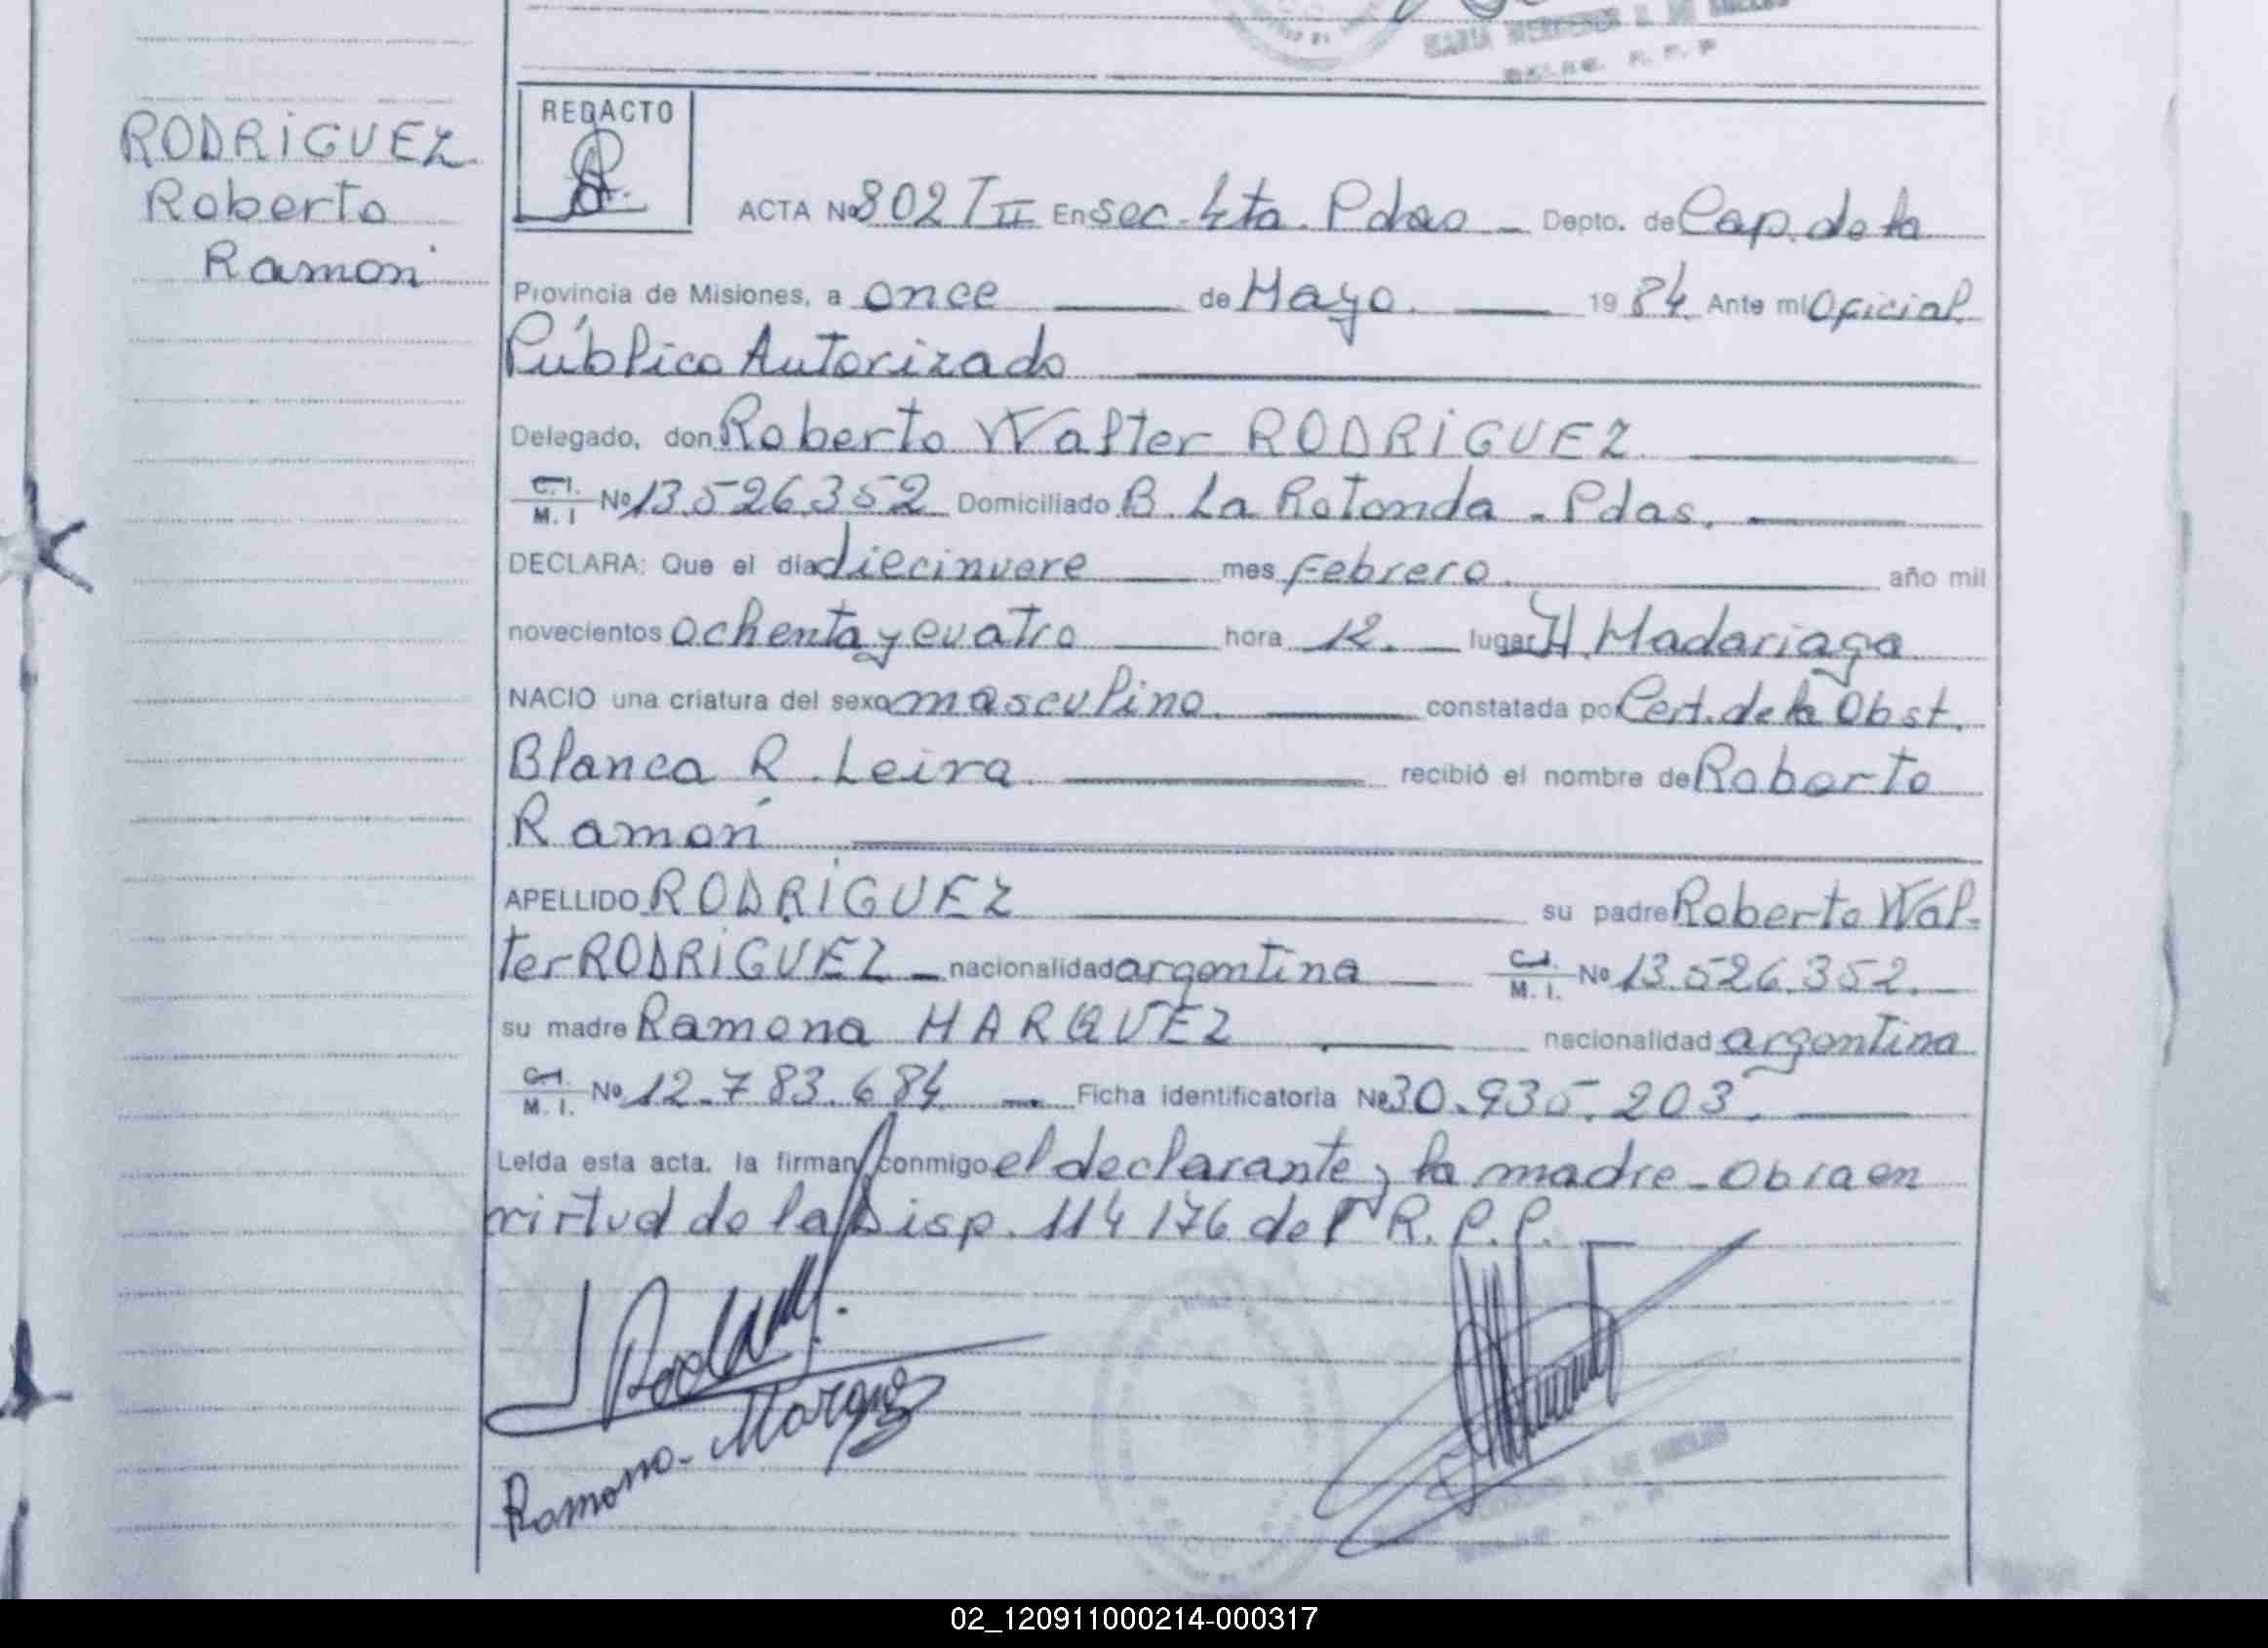 RODRIGUEZ
Roberto
Ramon
REDACTO
ACTA Nº 802 T II En sec. 4ta. Pdas - Depto. de Cap. de la
Provincia de Misiones, a once de Mayo. 1984. Ante mi Oficial
Público Autorizado
Delegado, don Roberto Walter RODRIGUEZ
C.I. M. I Nº 13.526.352 Domiciliado B. La Rotonda - Pdas.
DECLARA: Que el dia diecinueve mes Febrero. año mil
novecientos ochenta y cuatro hora 12. lugar H. Madariaga
NACIO una criatura del sexo masculino. constatada por Cert. de la Obst.
Blanca R. Leira recibió el nombre de Roberto
Ramón
APELLIDO RODRIGUEZ su padre Roberto Wal-
ter RODRIGUEZ - nacionalidad argentina C.I. M. I. Nº 13.526.352.
su madre Ramona MARQUEZ nacionalidad argentina
C.I. M. I. Nº 12.783.684 Ficha identificatoria Nº 30.935.203.
Leida esta acta, la firman conmigo el declarante y la madre - Obra en
virtud de la Disp. 114/76 del R.P.P.
Ramona - Marquez
02_120911000214-000317